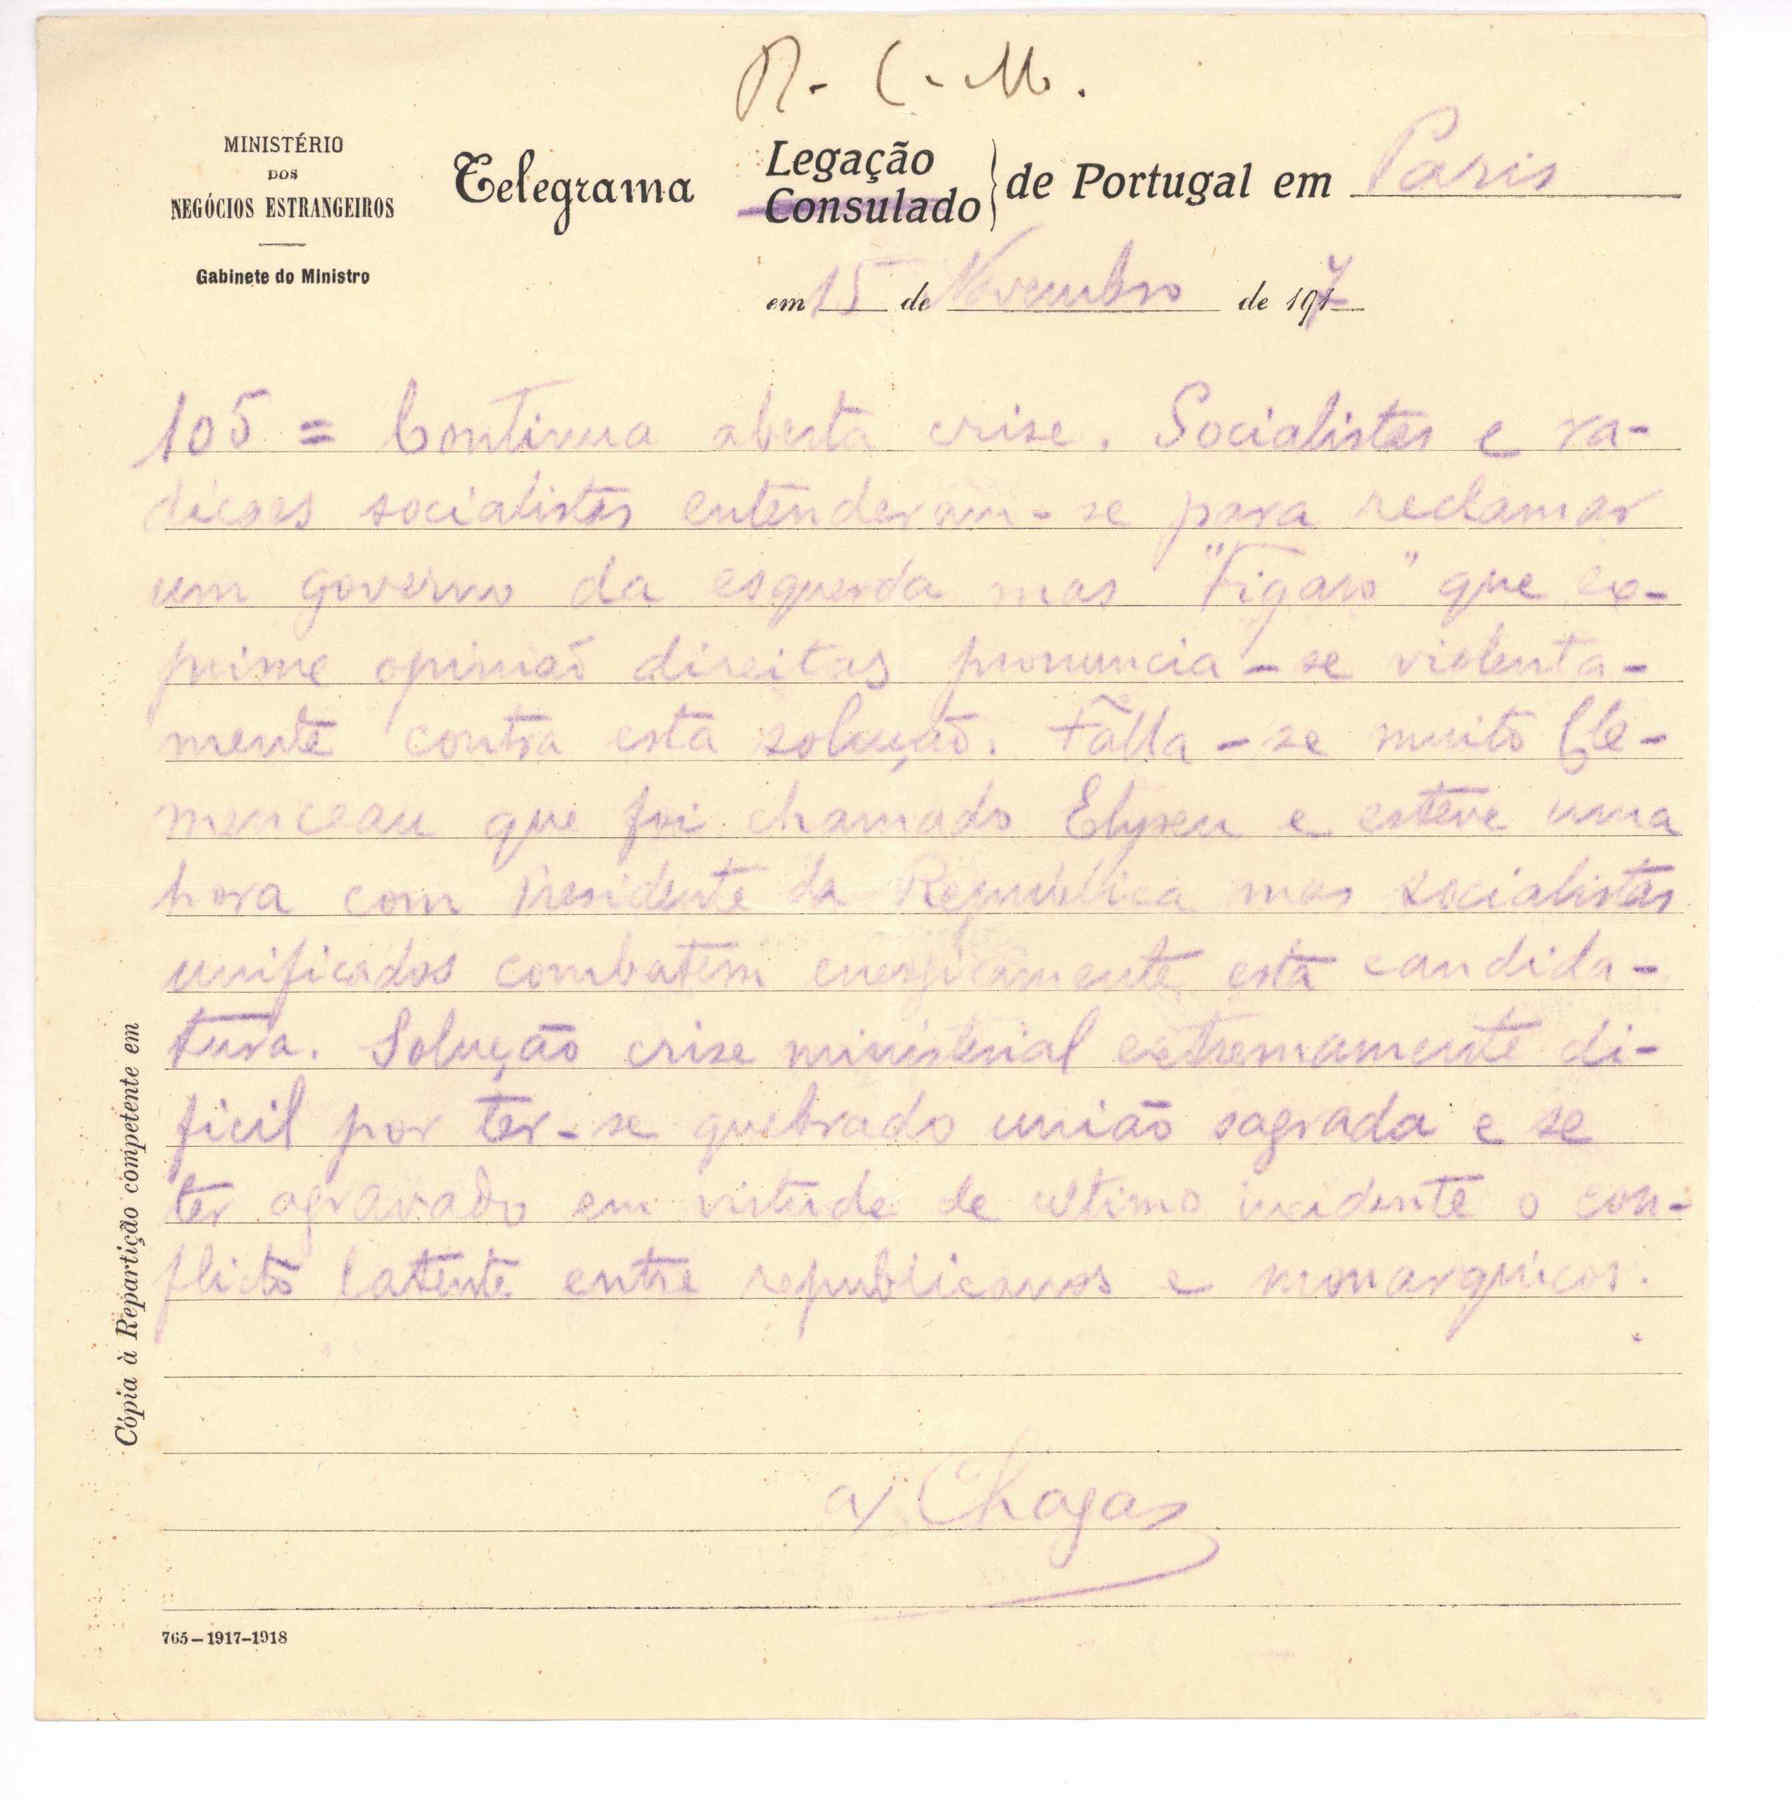 P. C. M.
MINISTÉRIO
DOS
NEGÓCIOS ESTRANGEIROS
Gabinete do Ministro
Telegrama
Legação
Consulado
de Portugal em Paris
em 15 de Novembro de 1917
105 = Continua aberta crise. Socialistas e ra-
dicaes socialistas entenderam-se para reclamar
um governo da esquerda mas "Figaro" que ex-
prime opinião direitas pronuncia-se violenta-
mente contra esta solução. Falla-se muito Cle-
menceau que foi chamado Elyseu e esteve uma
hora com Presidente da Republica mas socialistas
unificados combatem energicamente esta candida-
tura. Solução crise ministerial extremamente di-
ficil por ter-se quebrado união sagrada e se
ter agravado em virtude de ultimo incidente o con-
flicto latente entre republicanos e monarquicos.
a) Chagas
Cópia à Repartição competente em
765—1917-1918